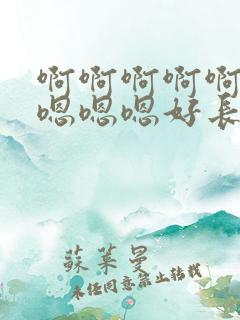 啊啊啊啊啊
嗯嗯嗯好长
蘇萊曼
未经同意禁止转载